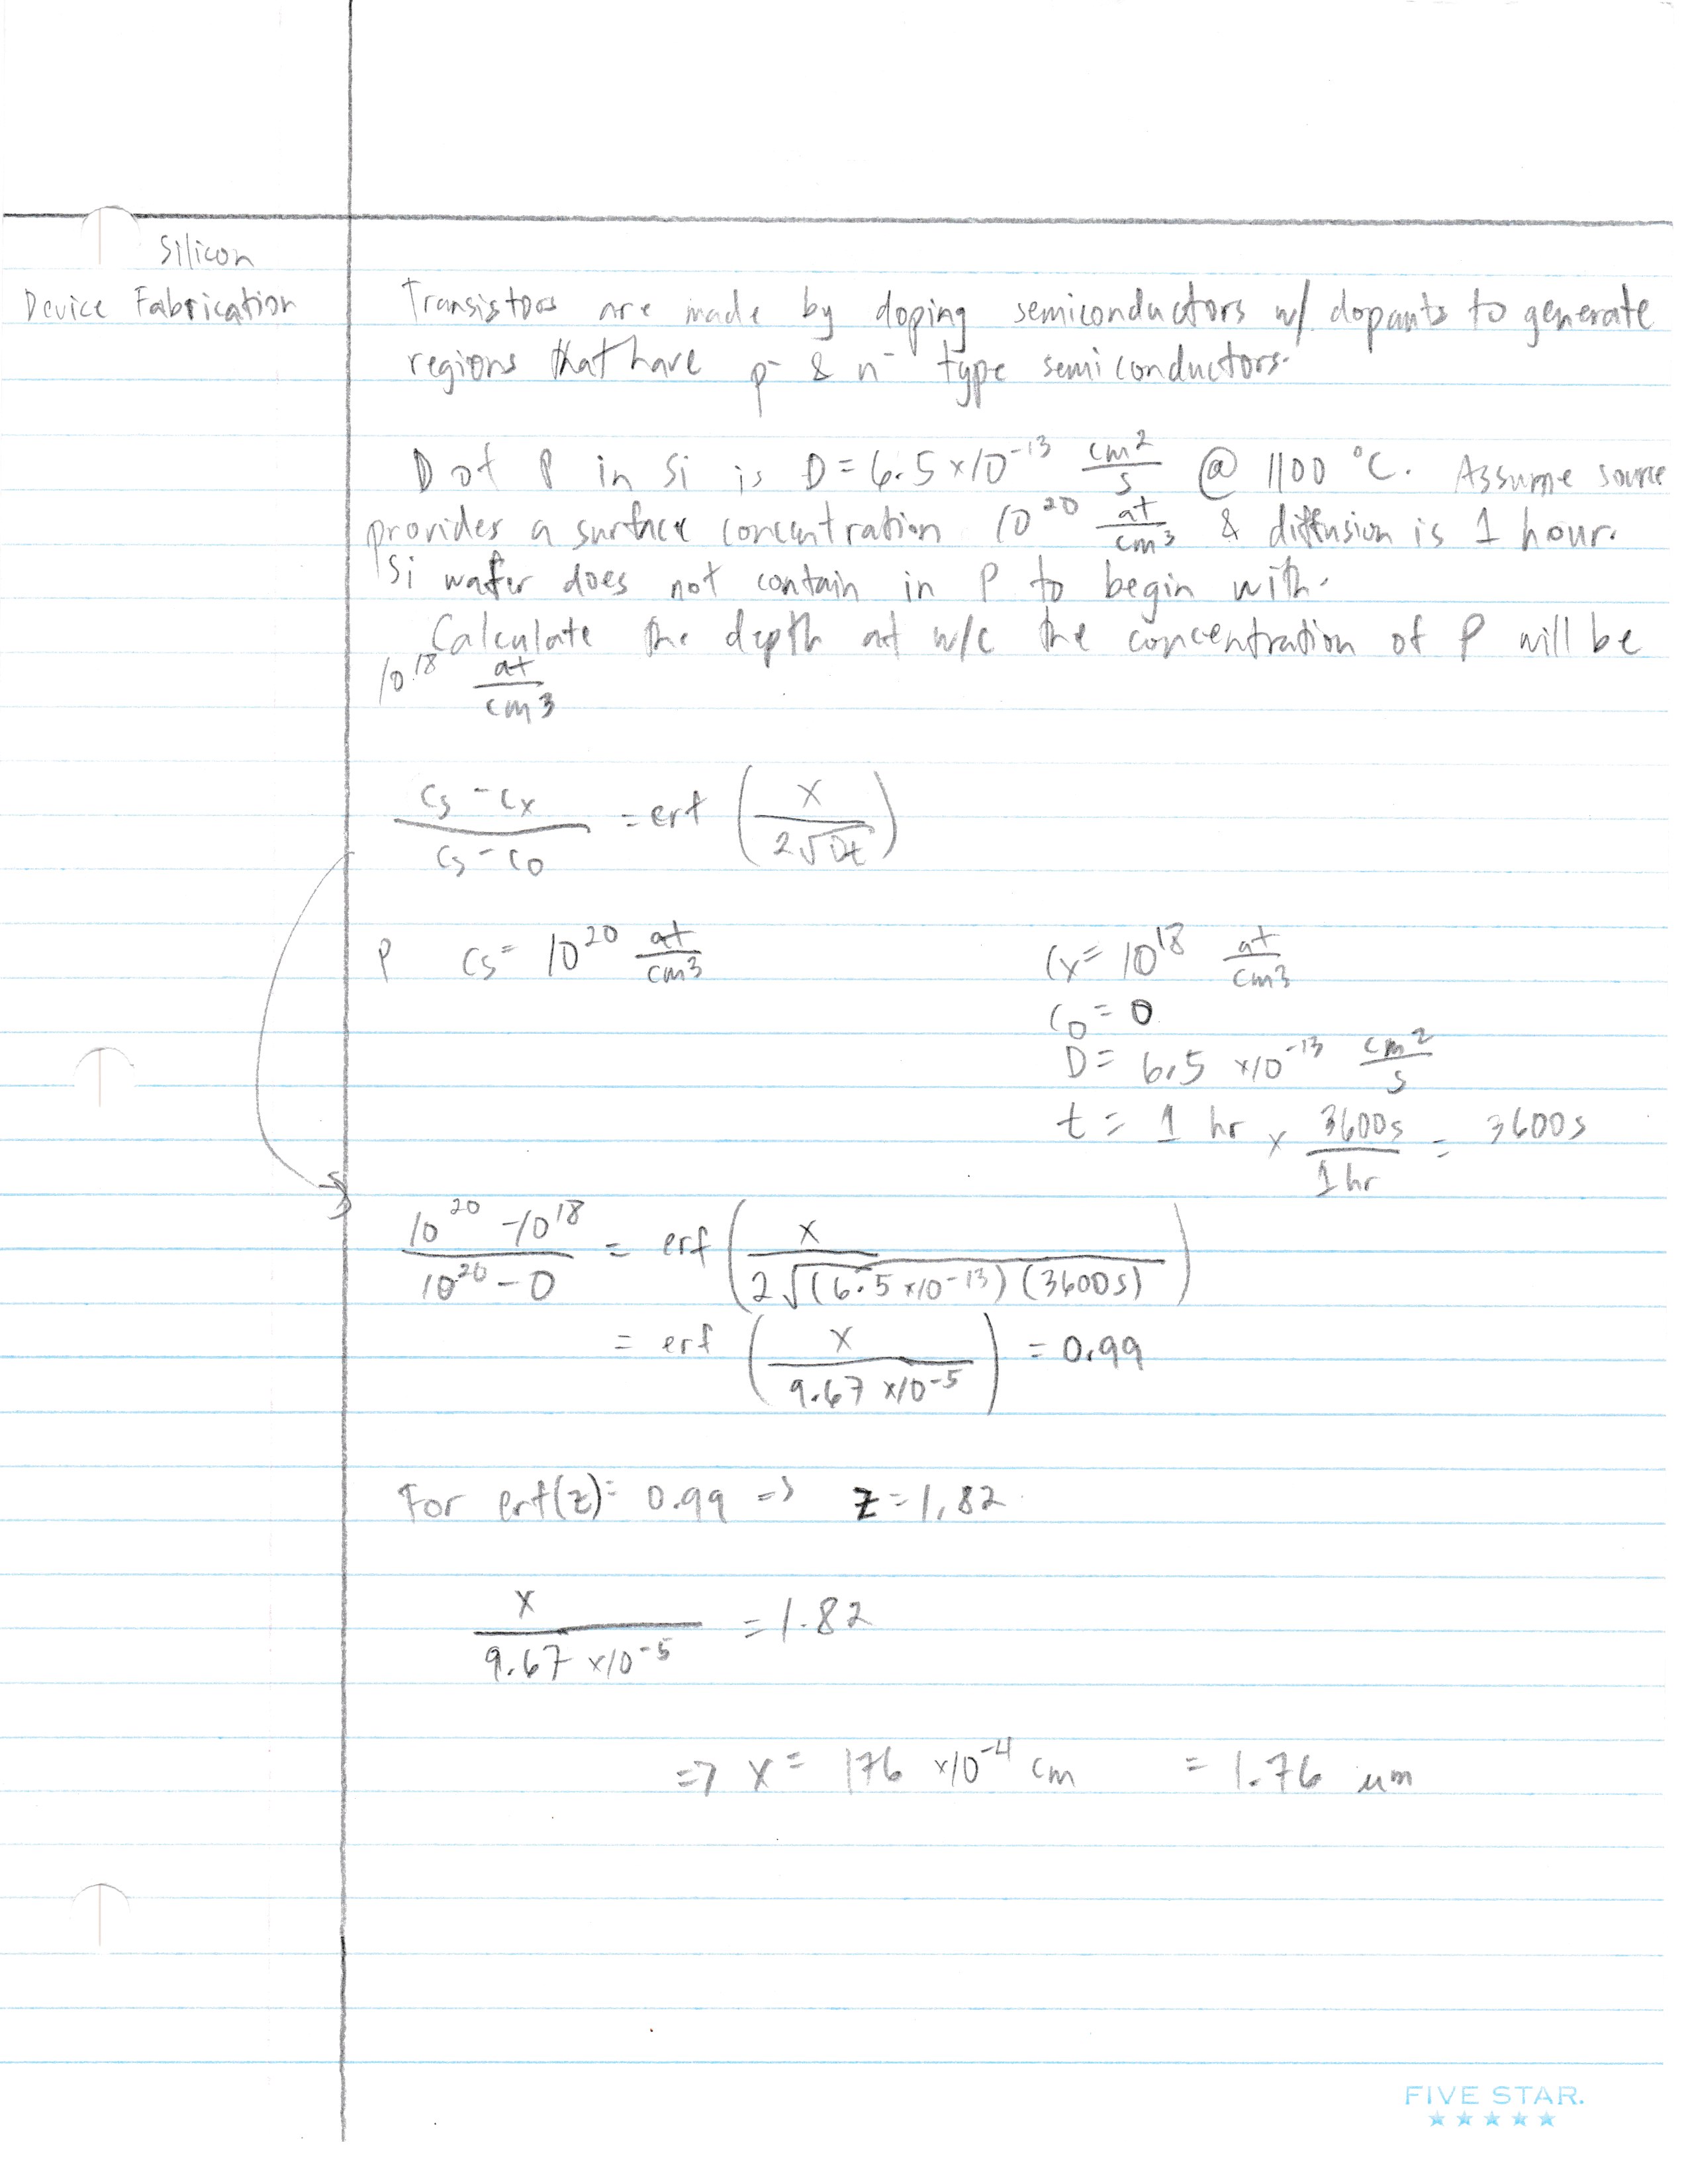 Silicon
Device Fabrication
Transistors are made by doping semiconductors w/ dopants to generate
regions that have p- & n- type semiconductors.
D of P in Si is D = 6.5 x10^-13 cm^2/s @ 1100 °C. Assume source
provides a surface concentration 10^20 at/cm^3 & diffusion is 1 hour.
Si wafer does not contain in P to begin with.
Calculate the depth at w/c the concentration of P will be
10^18 at/cm^3
(Cs - Cx)/(Cs - C0) = erf (x/(2√Dt))
P Cs = 10^20 at/cm^3
Cx = 10^18 at/cm^3
C0 = 0
D = 6.5 x10^-13 cm^2/s
t = 1 hr x 3600s/1hr = 3600s
(10^20 - 10^18)/(10^20 - 0) = erf (x/(2√(6.5 x10^-13)(3600s)))
= erf (x/(9.67 x10^-5)) = 0.99
For erf(z) = 0.99 => z = 1.82
x/(9.67 x10^-5) = 1.82
=> x = 176 x10^-4 cm = 1.76 um
FIVE STAR.